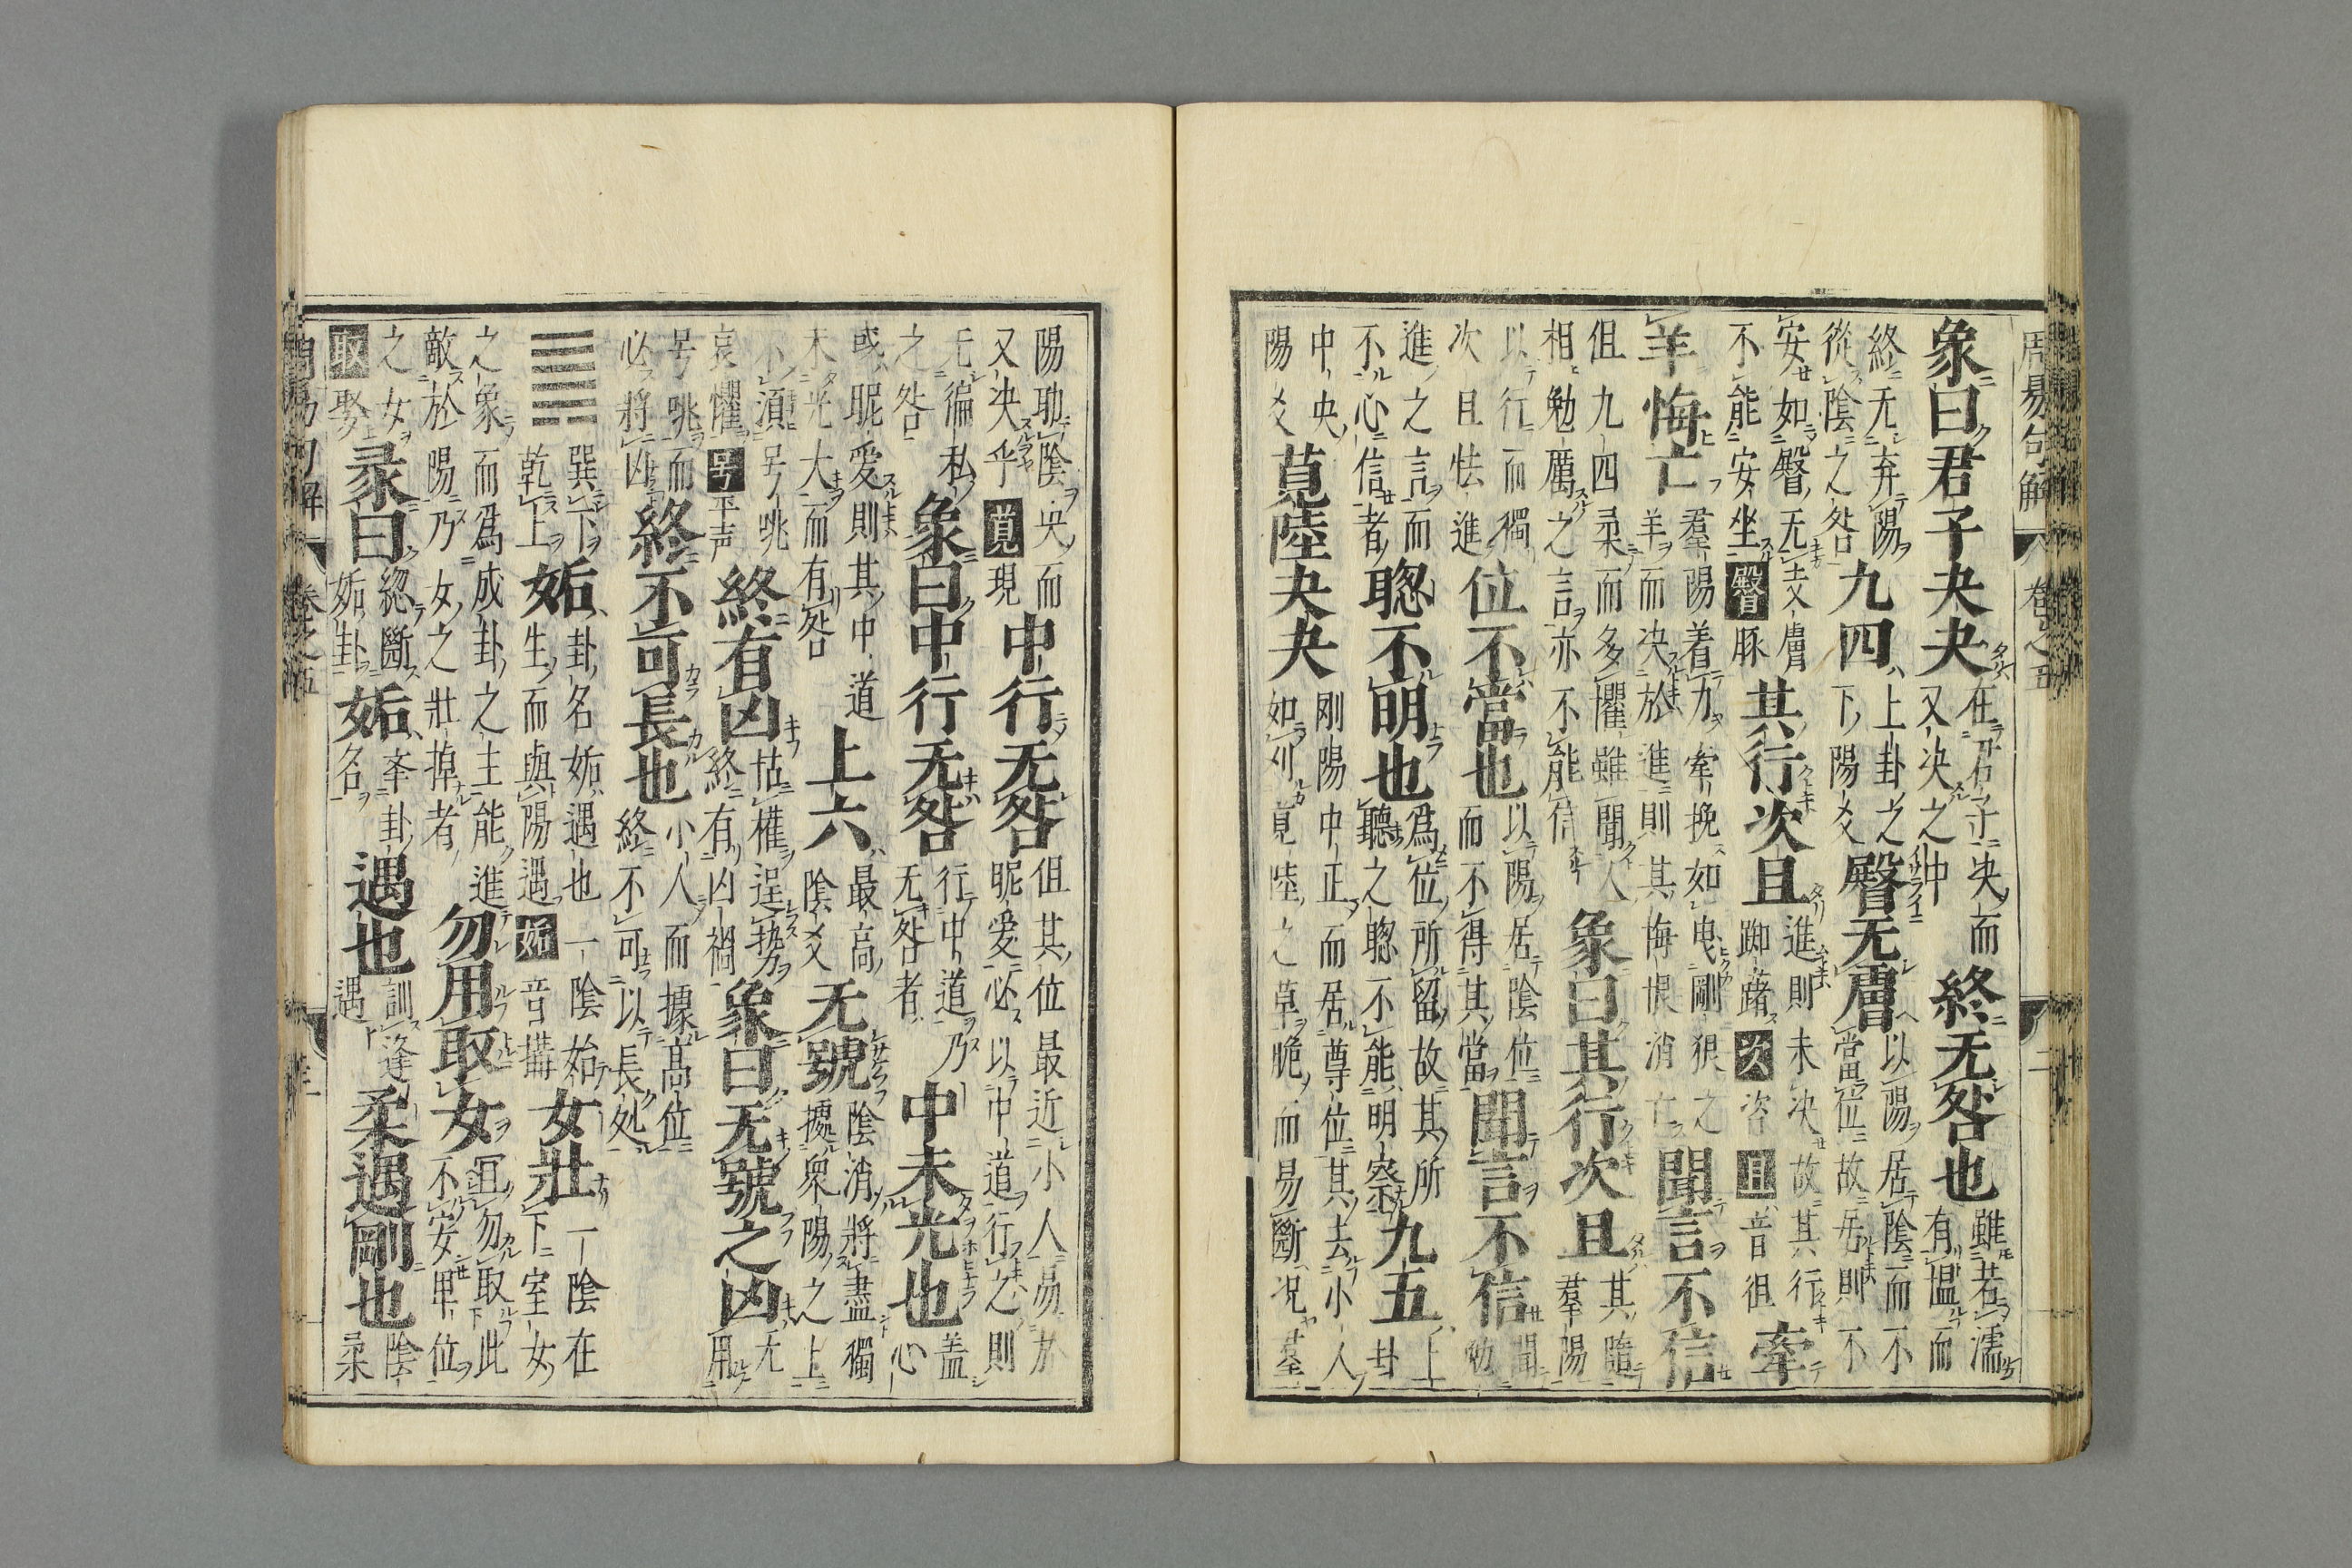 周易句解 卷之五 二
象曰君子夬夬在君子決而又決之中終无咎也雖若濡有慍而
終无弃陽從陰之咎九四上卦之下陽爻臀无膚以陽居陰而不當位故居則不
安如臀无支膚不能安坐臀豚其行次且進則未決故其行踟躇次咨且音徂牽
羊悔亡羣陽着力牽挽如曳剛狠之羊而決於進則其悔恨消亡聞言不信
但九四柔而多懼雖聞人相勉厲之言亦不能信象曰其行次且其隨羣陽
以行而獨次且怯進位不當也以陽居陰位而不得其當聞言不信聞勉
進之言而不心信者聰不明也為位所留故其所聽之聰不能明察九五上卦
中央陽爻莧陸夬夬剛陽中正而居尊位其去小人如刈莧陸之草脆而易斷況羣
陽助陰夬而又決乎莧現中行无咎但其位最近小人易於昵愛必以中道行之則
无徧私之咎象曰中行无咎行中道乃无咎者中未光也盖心
或昵愛則其中道未光大而有咎上六最高陰爻无號陰消將盡獨據衆陽之上
不須号咷哀懼号平声終有凶怙權逞勢終有凶禍象曰无號之凶无用
号咷而必將凶終不可長也小人而據高位終不可以長処
䷫巽下乾上姤卦名姤遇也一陰始生而與陽遇姤音搆女壯一陰在下室女
之象而為成卦之主能進敵於陽乃女之壯掉者勿用取女冝勿取此不安卑位
之女取娶彖曰緫斷姤卦姤夲卦名遇也訓逢遇柔遇剛也陰柔